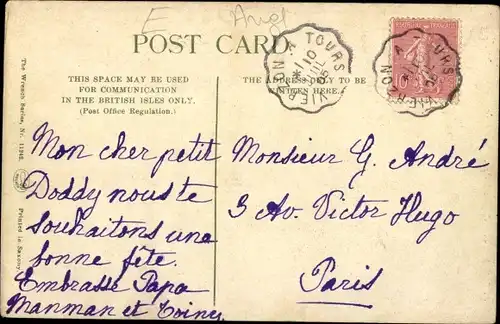 E Angl
POST CARD
THIS SPACE MAY BE USED
FOR COMMUNICATION
IN THE BRITISH ISLES ONLY.
(Post Office Regulation.)
THE ADDRESS ONLY TO BE
WRITTEN HERE.
VIERZON A TOURS
10
05
A TOURS
VIERZON
10
The Wrench Series, Nr. 11946
Printed in Saxony
Mon cher petit
Doddy nous te
souhaitons une
bonne fête.
Embrasse Papa
Manman et
Monsieur G. André
3 Av. Victor Hugo
Paris